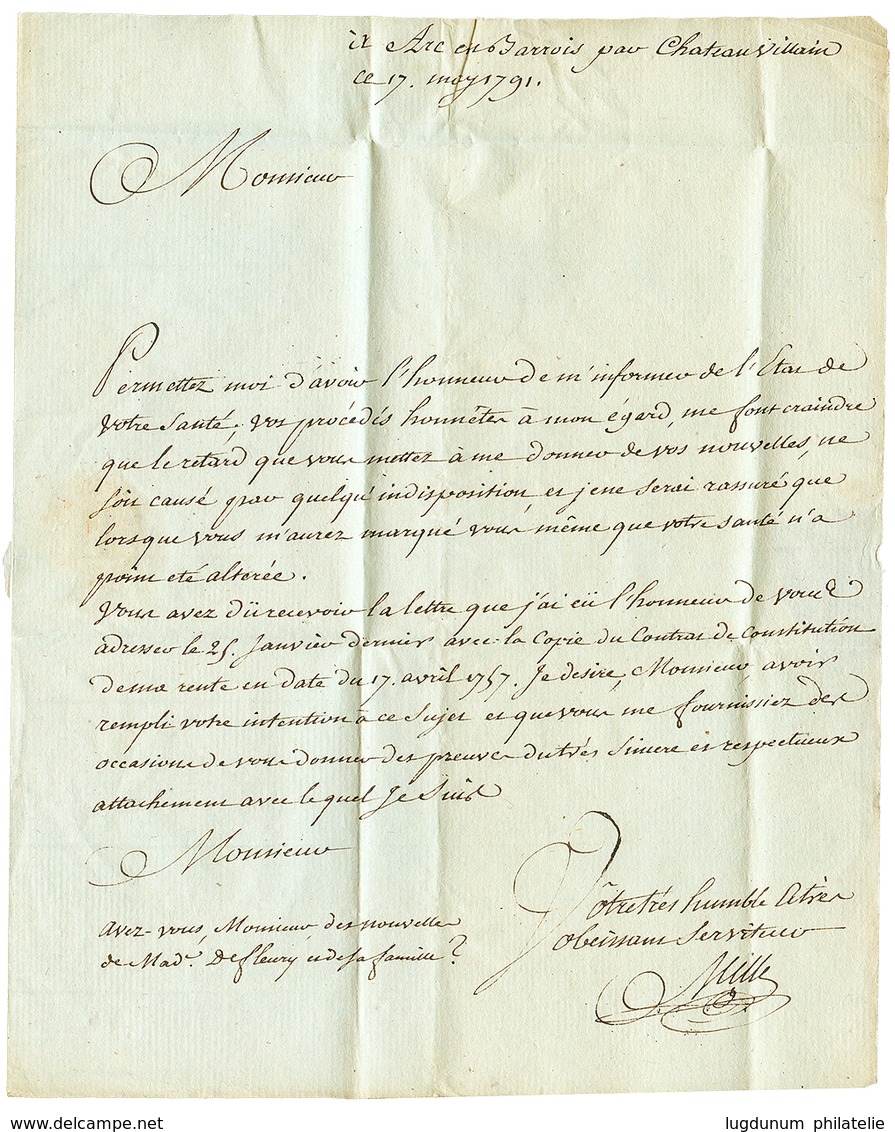 à Arc en Barrois par Chateau Villain
ce 17. may 1791.
Monsieur
Permettez moi d'avoir l'honneur de m'informer de l'Etat de
votre santé; vos procédés honnêtes à mon égard, me font craindre
que le retard que vous mettez à me donner de vos nouvelles, ne
soit causé par quelqu'indisposition et je ne serai rassuré que
lorsque vous m'aurez marqué vous même que votre santé n'a
point eté alterée.
Vous avez dû recevoir la lettre que j'ai eü l'honneur de vous
adresser le 25. Janvier dernier avec la Copie du Contrat de Constitution
de ma rente en date du 17. avril 1757. Je desire, Monsieur, avoir
rempli votre intention à ce sujet et que vous me fournissiez des
occasions de vous donner des preuves du très sincere et respectueux
attachement avec lequel Je Suis
Monsieur
Vôtre très humble et très
obeissant Serviteur
Mille
avez-vous, Monsieur des nouvelles
de Made. Defleury et de sa famille?
www.delcampe.net
lugdunum philatelie